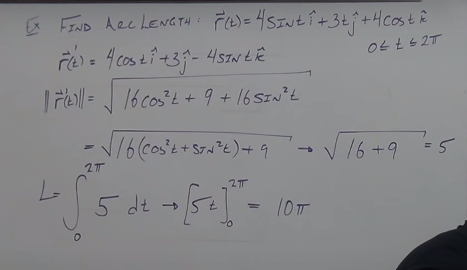 Ex FIND ARC LENGTH: r⃗(t) = 4 SIN t î + 3t ĵ + 4 cos t k̂
0 ≤ t ≤ 2π
r⃗'(t) = 4 cos t î + 3 ĵ - 4 SIN t k̂
‖r⃗'(t)‖ = √(16 cos²t + 9 + 16 SIN²t)
= √(16(cos²t + SIN²t) + 9) → √(16 + 9) = 5
L = ∫₀^2π 5 dt → [5t]₀^2π = 10π